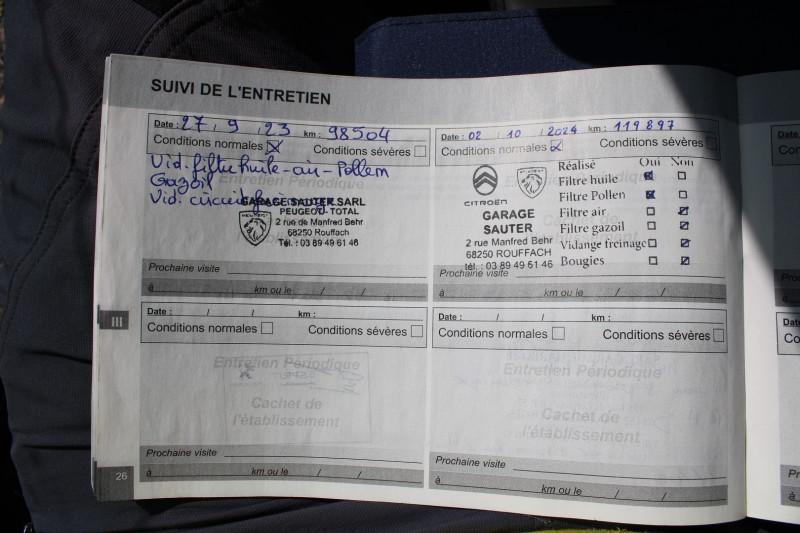 SUIVI DE L'ENTRETIEN
Date : 27 / 9 / 23 km : 98504
Conditions normales Conditions sévères
Vid. filtre huile - air - Pollem
Gazoil
Vid. circuit
Entretien Périodique
GARAGE SAUTER SARL
PEUGEOT-TOTAL
2 rue de Manfred Behr
68250 Rouffach
Tél. : 03 89 49 61 46
Prochaine visite
à km ou le / /
Date : 02 / 10 / 2024 km : 119897
Conditions normales Conditions sévères
CITROËN
GARAGE
SAUTER
2 rue Manfred Behr
68250 ROUFFACH
tél. : 03 89 49 61 46
Réalisé Oui Non
Filtre huile
Filtre Pollen
Filtre air
Filtre gazoil
Vidange freinage
Bougies
Prochaine visite
à km ou le / /
III
Date : / / km :
Conditions normales Conditions sévères
Entretien Périodique
Cachet de
l'établissement
Prochaine visite
à km ou le / /
Date : / / km :
Conditions normales Conditions sévères
Entretien Périodique
Cachet de
l'établissement
Prochaine visite
à km ou le / /
26